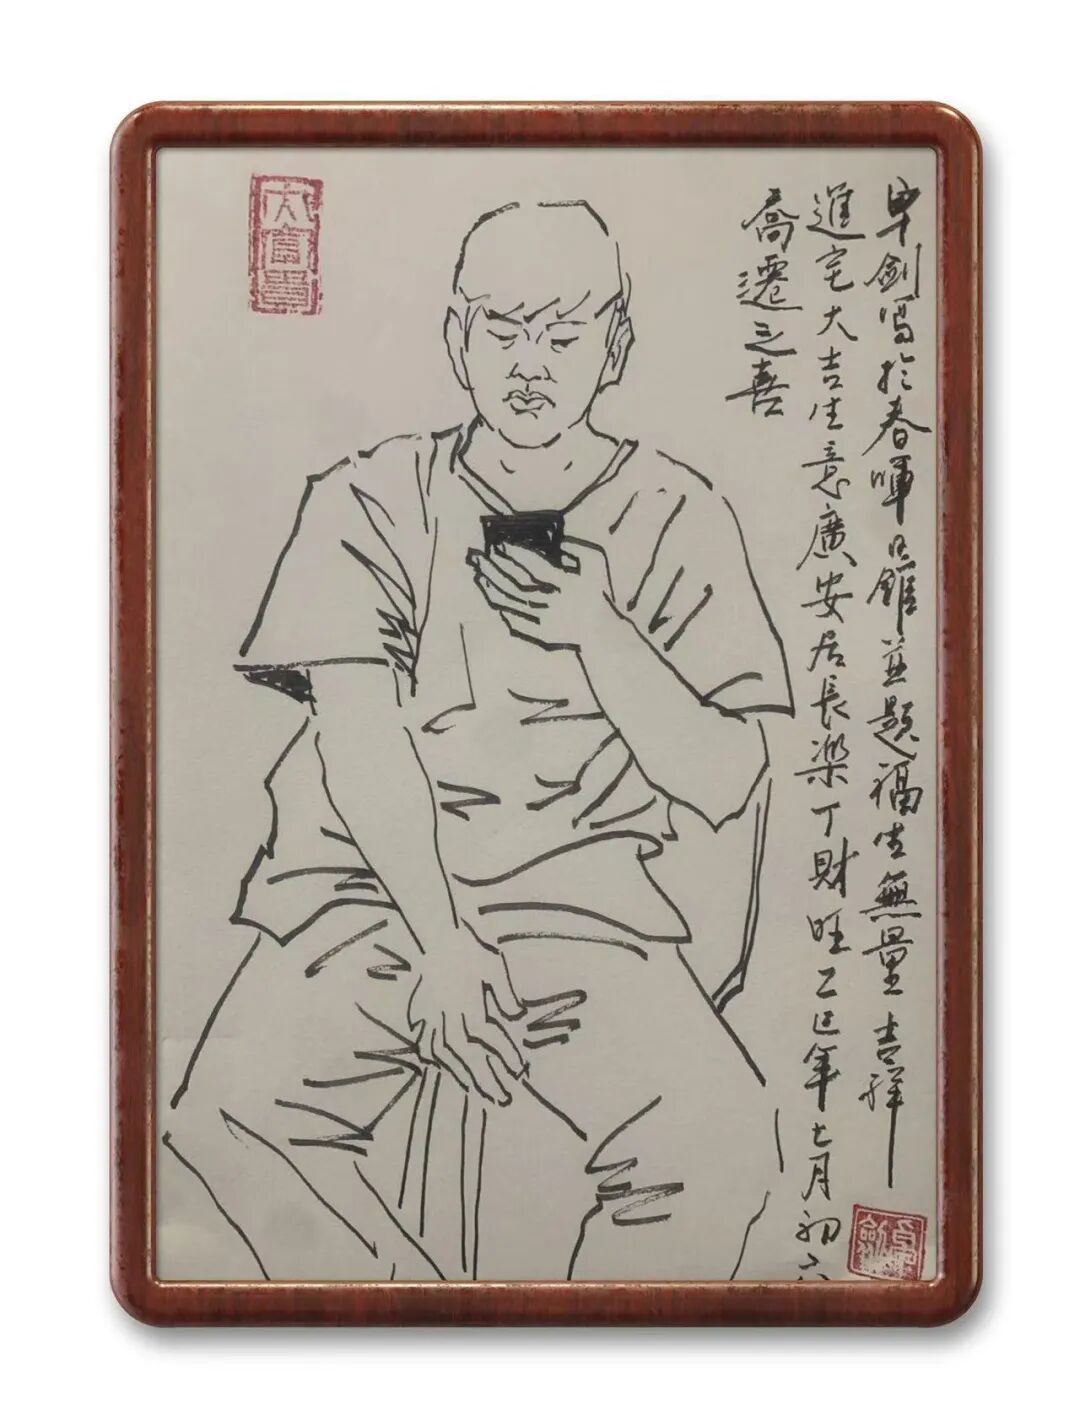 卓劍寫於春暉館並題福生無量 吉祥
進宅大吉生意廣安居長樂丁財旺乙巳年七月初六
喬遷之喜
大富貴